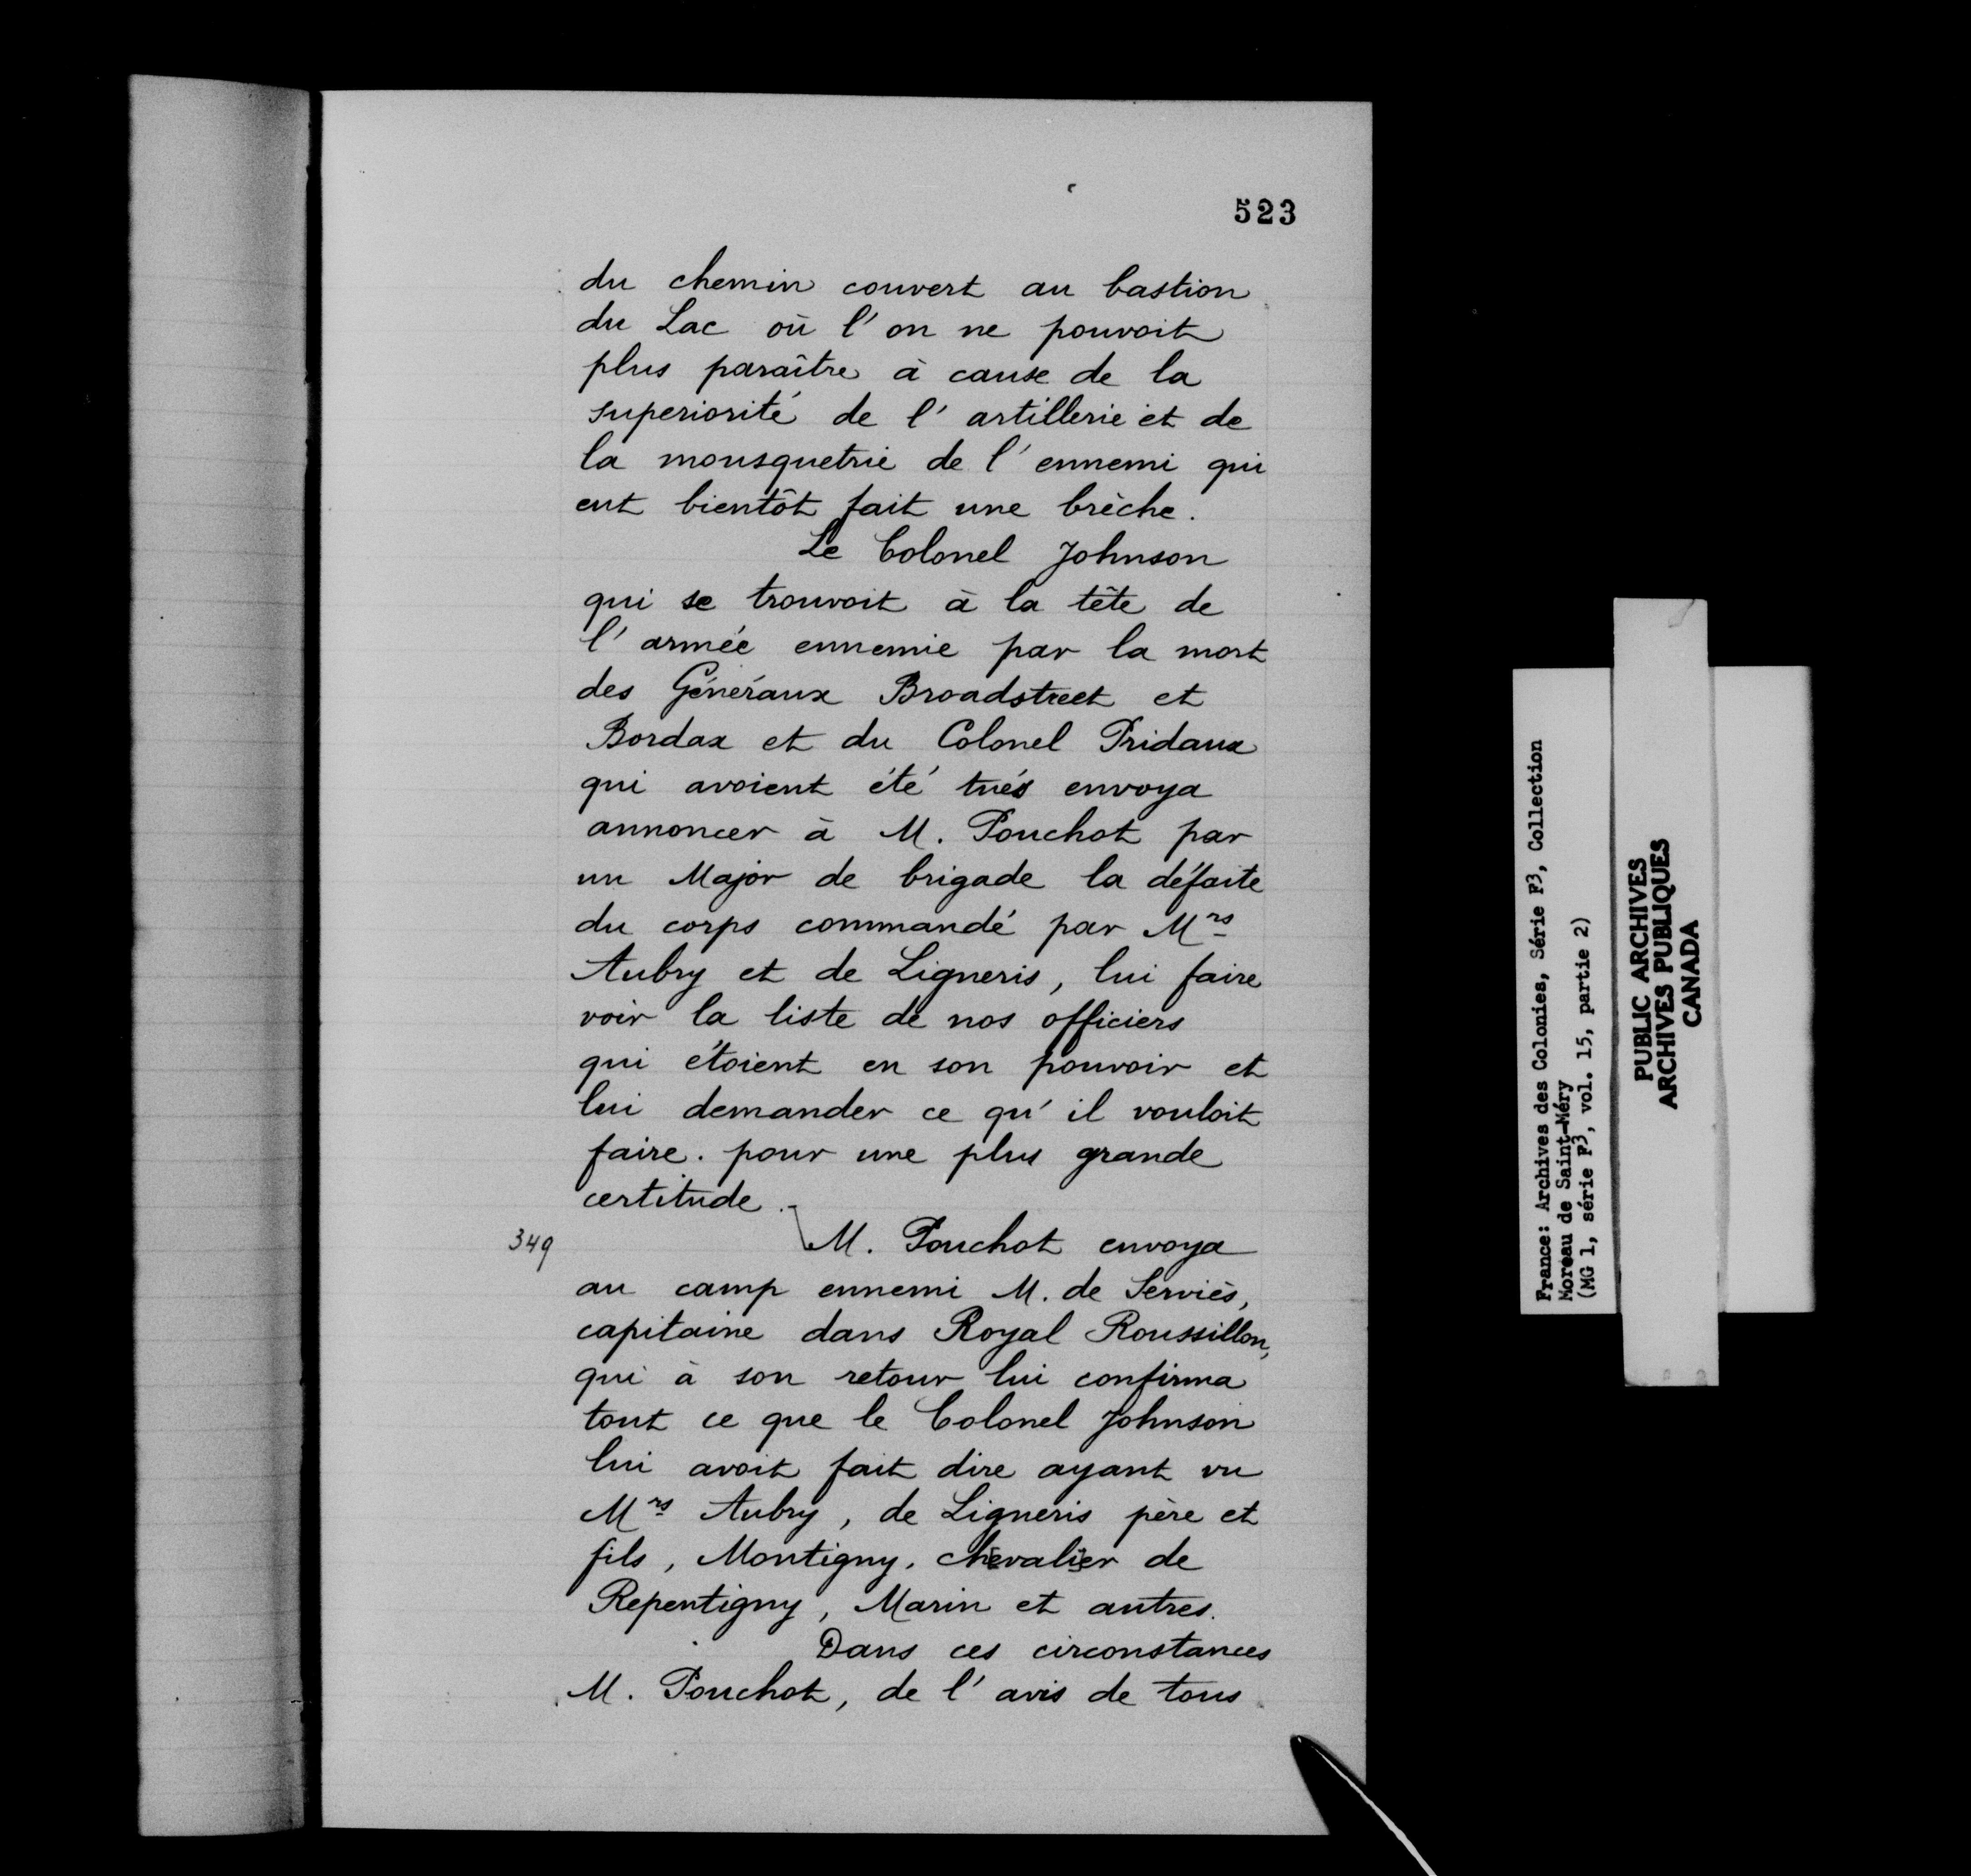 523
du chemin couvert au bastion
du Lac où l'on ne pouvoit
plus paraître à cause de la
superiorité de l'artillerie et de
la mousquetrie de l'ennemi qui
eut bientôt fait une brèche.
Le Colonel Johnson
qui se trouvoit à la tête de
l'armée ennemie par la mort
des Généraux Broadstreet et
Bordax et du Colonel Pridaux
qui avoient été tués envoya
annoncer à M. Pouchot par
un Major de brigade la défaite
du corps commandé par Mrs
Aubry et de Ligneris, lui faire
voir la liste de nos officiers
qui étoient en son pouvoir et
lui demander ce qu'il vouloit
faire. pour une plus grande
certitude.
349
M. Pouchot envoya
au camp ennemi M. de Serviès,
capitaine dans Royal Roussillon,
qui à son retour lui confirma
tout ce que le Colonel Johnson
lui avoit fait dire ayant vu
Mrs Aubry, de Ligneris père et
fils, Montigny, chevalier de
Repentigny, Marin et autres.
Dans ces circonstances
M. Pouchot, de l'avis de tous
France: Archives des Colonies, Série F3, Collection
Moreau de Saint-Méry
(MG 1, série F3, vol. 15, partie 2)
PUBLIC ARCHIVES
ARCHIVES PUBLIQUES
CANADA